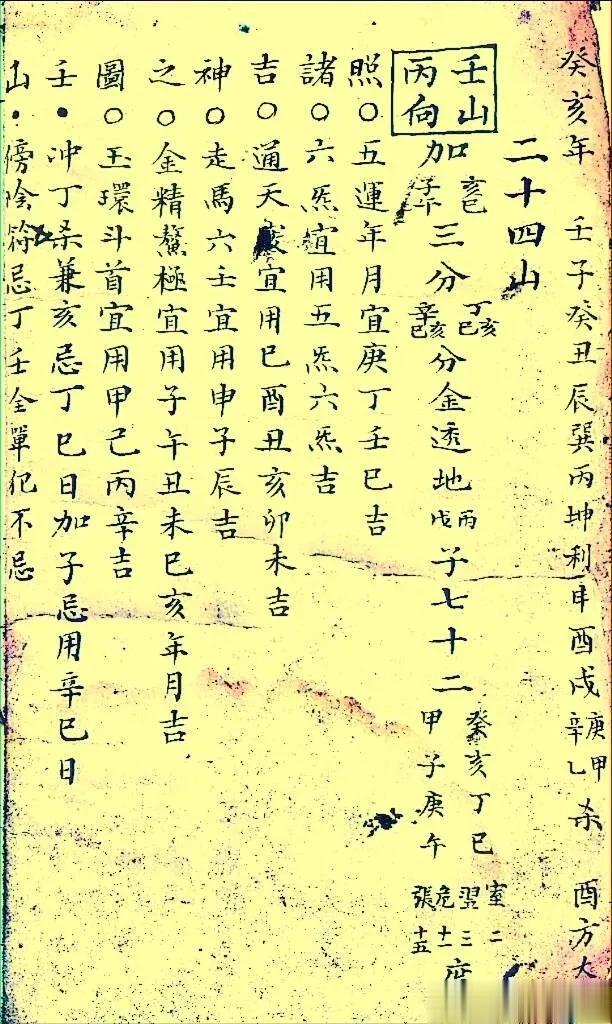 癸亥年 壬子癸丑辰巽丙坤利 申酉戌庚辛甲乙杀 酉方大
二十四山
壬山丙向 加亥巳子午三分丁亥辛亥丁巳辛巳分金透地丙戊子七十二癸亥丁巳甲子庚午室二翌三危十一張十五度
照○五運年月宜庚丁壬巳吉
諸○六炁宜用五炁六炁吉
吉○通天竅宜用巳酉丑亥卯未吉
神○走馬六壬宜用申子辰吉
之○金精鰲極宜用子午丑未巳亥年月吉
圖○玉環斗首宜用甲己丙辛吉
壬•冲丁杀兼亥忌丁巳日加子忌用辛巳日
山•傍陰符忌丁壬全單犯不忌